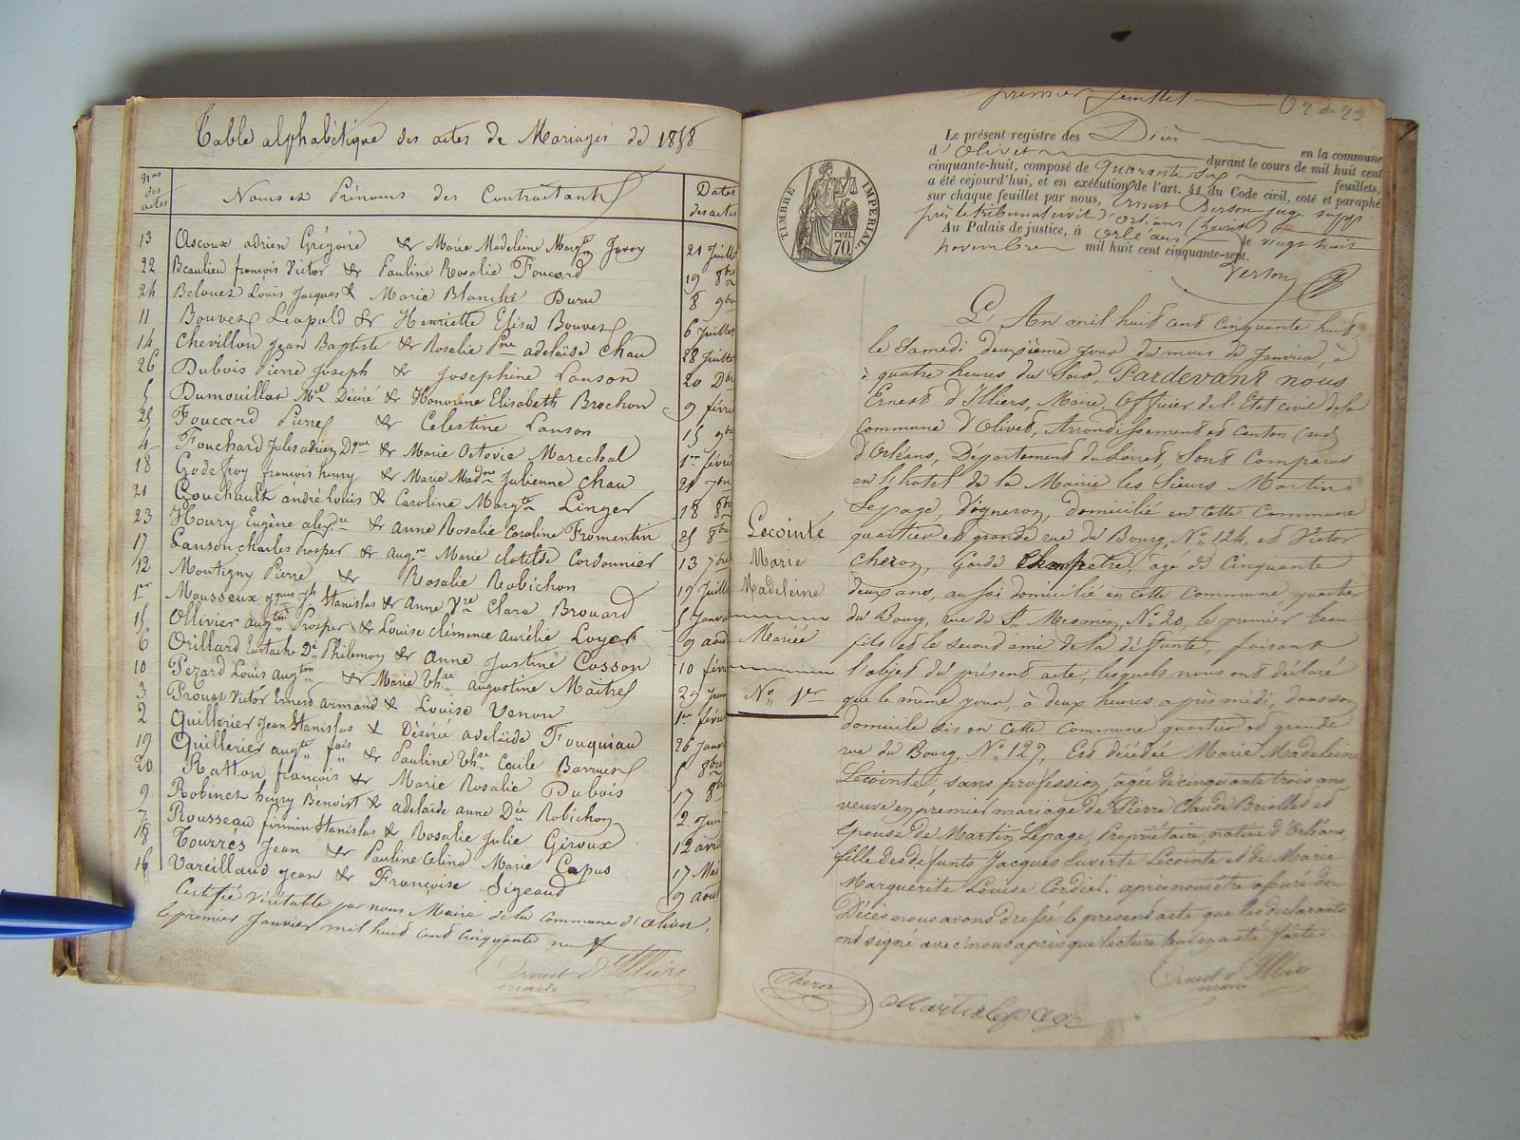 Table alphabétique des actes de Mariages de 1858
Nos des actes
Noms et Prénoms des Contractants
Dates des actes
13 Ascoux adrien Grégoire & Marie Madeleine Margte Javoy 21 Juill
22 Beaulieu françois Victor & Pauline Rosalie Foucard 19 8bre
24 Belouet Louis Jacques & Marie Blanche Duru 8 9bre
11 Bouvet Léopold & Henriette Elisa Bouvet 6 Juillet
14 Chevillon Jean Baptiste & Rosalie adelaïse Chau 28 Juillet
26 Dubois Pierre Joseph & Josephine Lanson 20 Dbre
5 Dumouillat Mel Désiré & Honorine Elisabeth Brochon 9 févri
25 Foucard Pierre & Celestine Lanson 15 9bre
4 Fouchard Jules adrien Dque & Marie Octavie Marechal 1er févri
18 Godefroy françois henry & Marie Madne Julienne Chau
21 Gouchault andré Louis & Caroline Margte Linger 18 8bre
23 Houry Eugène alexdre & anne Rosalie Caroline Fromentin 25 8bre
17 Lanson charles Prosper & Augne Marie clotilde Cordonnier 13 7bre
12 Montigny Pierre & Rosalie Robichon 19 Juill
1er Mousseux Stanislas & Anne Vre Clara Brouard 5 Janv
15 Ollivier augtin Prosper & Louise clémence aurélie Loyer 9 aoû
6 Orillard Eustache Dé Philemon & Anne Justine Cosson 10 févr
10 Pezard Louis augtin & Marie Thse augustine Maitre
3 Prouet Victor Ernest armand & Louise Venon 1er févri
2 Quillerier Jean Stanislas & Désirée adelaïde Fouquiau 26 Janv
19 Quillerier augte fois & Pauline Thse Cécile Barruet 5 8bre
20 Ratton françois & Marie Rosalie Dubois 17 8b
9 Robinet henry Bénoist & adelaïde anne Dée Robichon 2 Jui
7 Rousseau firmin Stanislas & Rosalie Julie Giroux 12 avri
Tourrés Jean & Pauline Celina Marie Capus 17 Mai
16 Vareillaud Jean & Françoise Sigeaud 9 août
Certifié véritable par nous Maire de la Commune d'Olivet,
le premier Janvier mil huit cent cinquante neuf
Ernest d'Illiers
maire
premier feuillet
Le présent registre des Décès en la commune
d'Olivet durant le cours de mil huit cent
cinquante-huit, composé de quarante six feuillets,
a été cejourd'hui, et en exécution de l'art. 41 du Code civil, coté et paraphé
sur chaque feuillet par nous, Ernest Berson juge supp
près le tribunal civil d'Orléans (Loiret)
Au Palais de justice, à Orléans le vingt huit
novembre mil huit cent cinquante-sept.
TIMBRE IMPERIAL
70 cen.
L'An mil huit cent cinquante huit
le Samedi deuxième jour du mois de Janvier, à
quatre heures du Soir, Pardevant nous
Ernest d'Illiers, Maire, Officier de l'Etat civil de la
Commune d'Olivet, Arrondissement et Canton (sud)
d'Orléans, Département du Loiret, Sont Comparus
en l'hotel de la Mairie les Sieurs Martin
Lepage, Vigneron, domicilié en cette Commune
quartier et grande rue du Bourg, No 124, et Victor
Cheron, Garde Champêtre, agé de Cinquante
deux ans, aussi domicilié en cette Commune quartier
du Bourg, rue de St Mesmin, No 20, le premier beau
fils et le second ami de la défunte, faisant
l'objet du présent acte, lesquels nous ont déclaré
que le même jour, à deux heures après midi, dans son
domicile sis en cette Commune quartier et grande
rue du Bourg, No 127, Est décédée Marie Madeleine
Lecointe, sans profession, agée de cinquante trois ans
veuve en premier mariage de Pierre Claude Briollet et
épouse de Martin Lepage, Propriétaire, native d'Orléans,
fille des défunts Jacques Lecointe et de Marie
Marguerite Louise Cordier. après nous être assuré du
Décès nous avons dressé le présent acte que les déclarants
ont signé avec nous après que lecture leur en a été faite.
Lecointe
Marie
Madeleine
Mariée
No 1er
Cheron
Martin Lepage
Ernest d'Illiers
maire